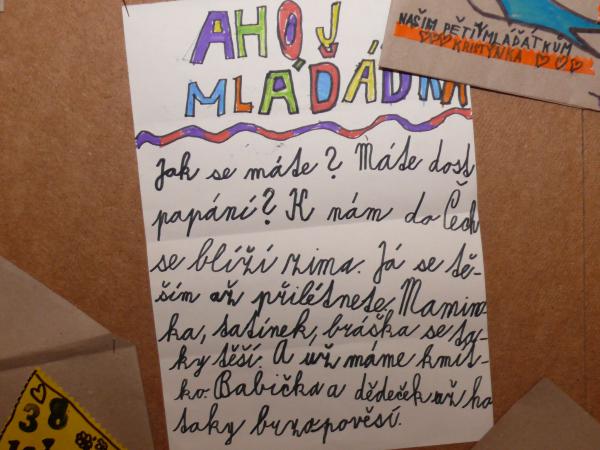 AHOJ
MLÁĎÁDKA
NAŠIM PĚTI MLÁĎÁTKŮM
KRISTÝNKA
Jak se máte? Máte dost
papání? K nám do Čech
se blíží zima. Já se tě-
ším až přilétnete. Mamin-
ka, tatínek, bráška se ta-
ky těší. A už máme krmít-
ko. Babička a dědeček už ho
taky brzo pověsí.
38